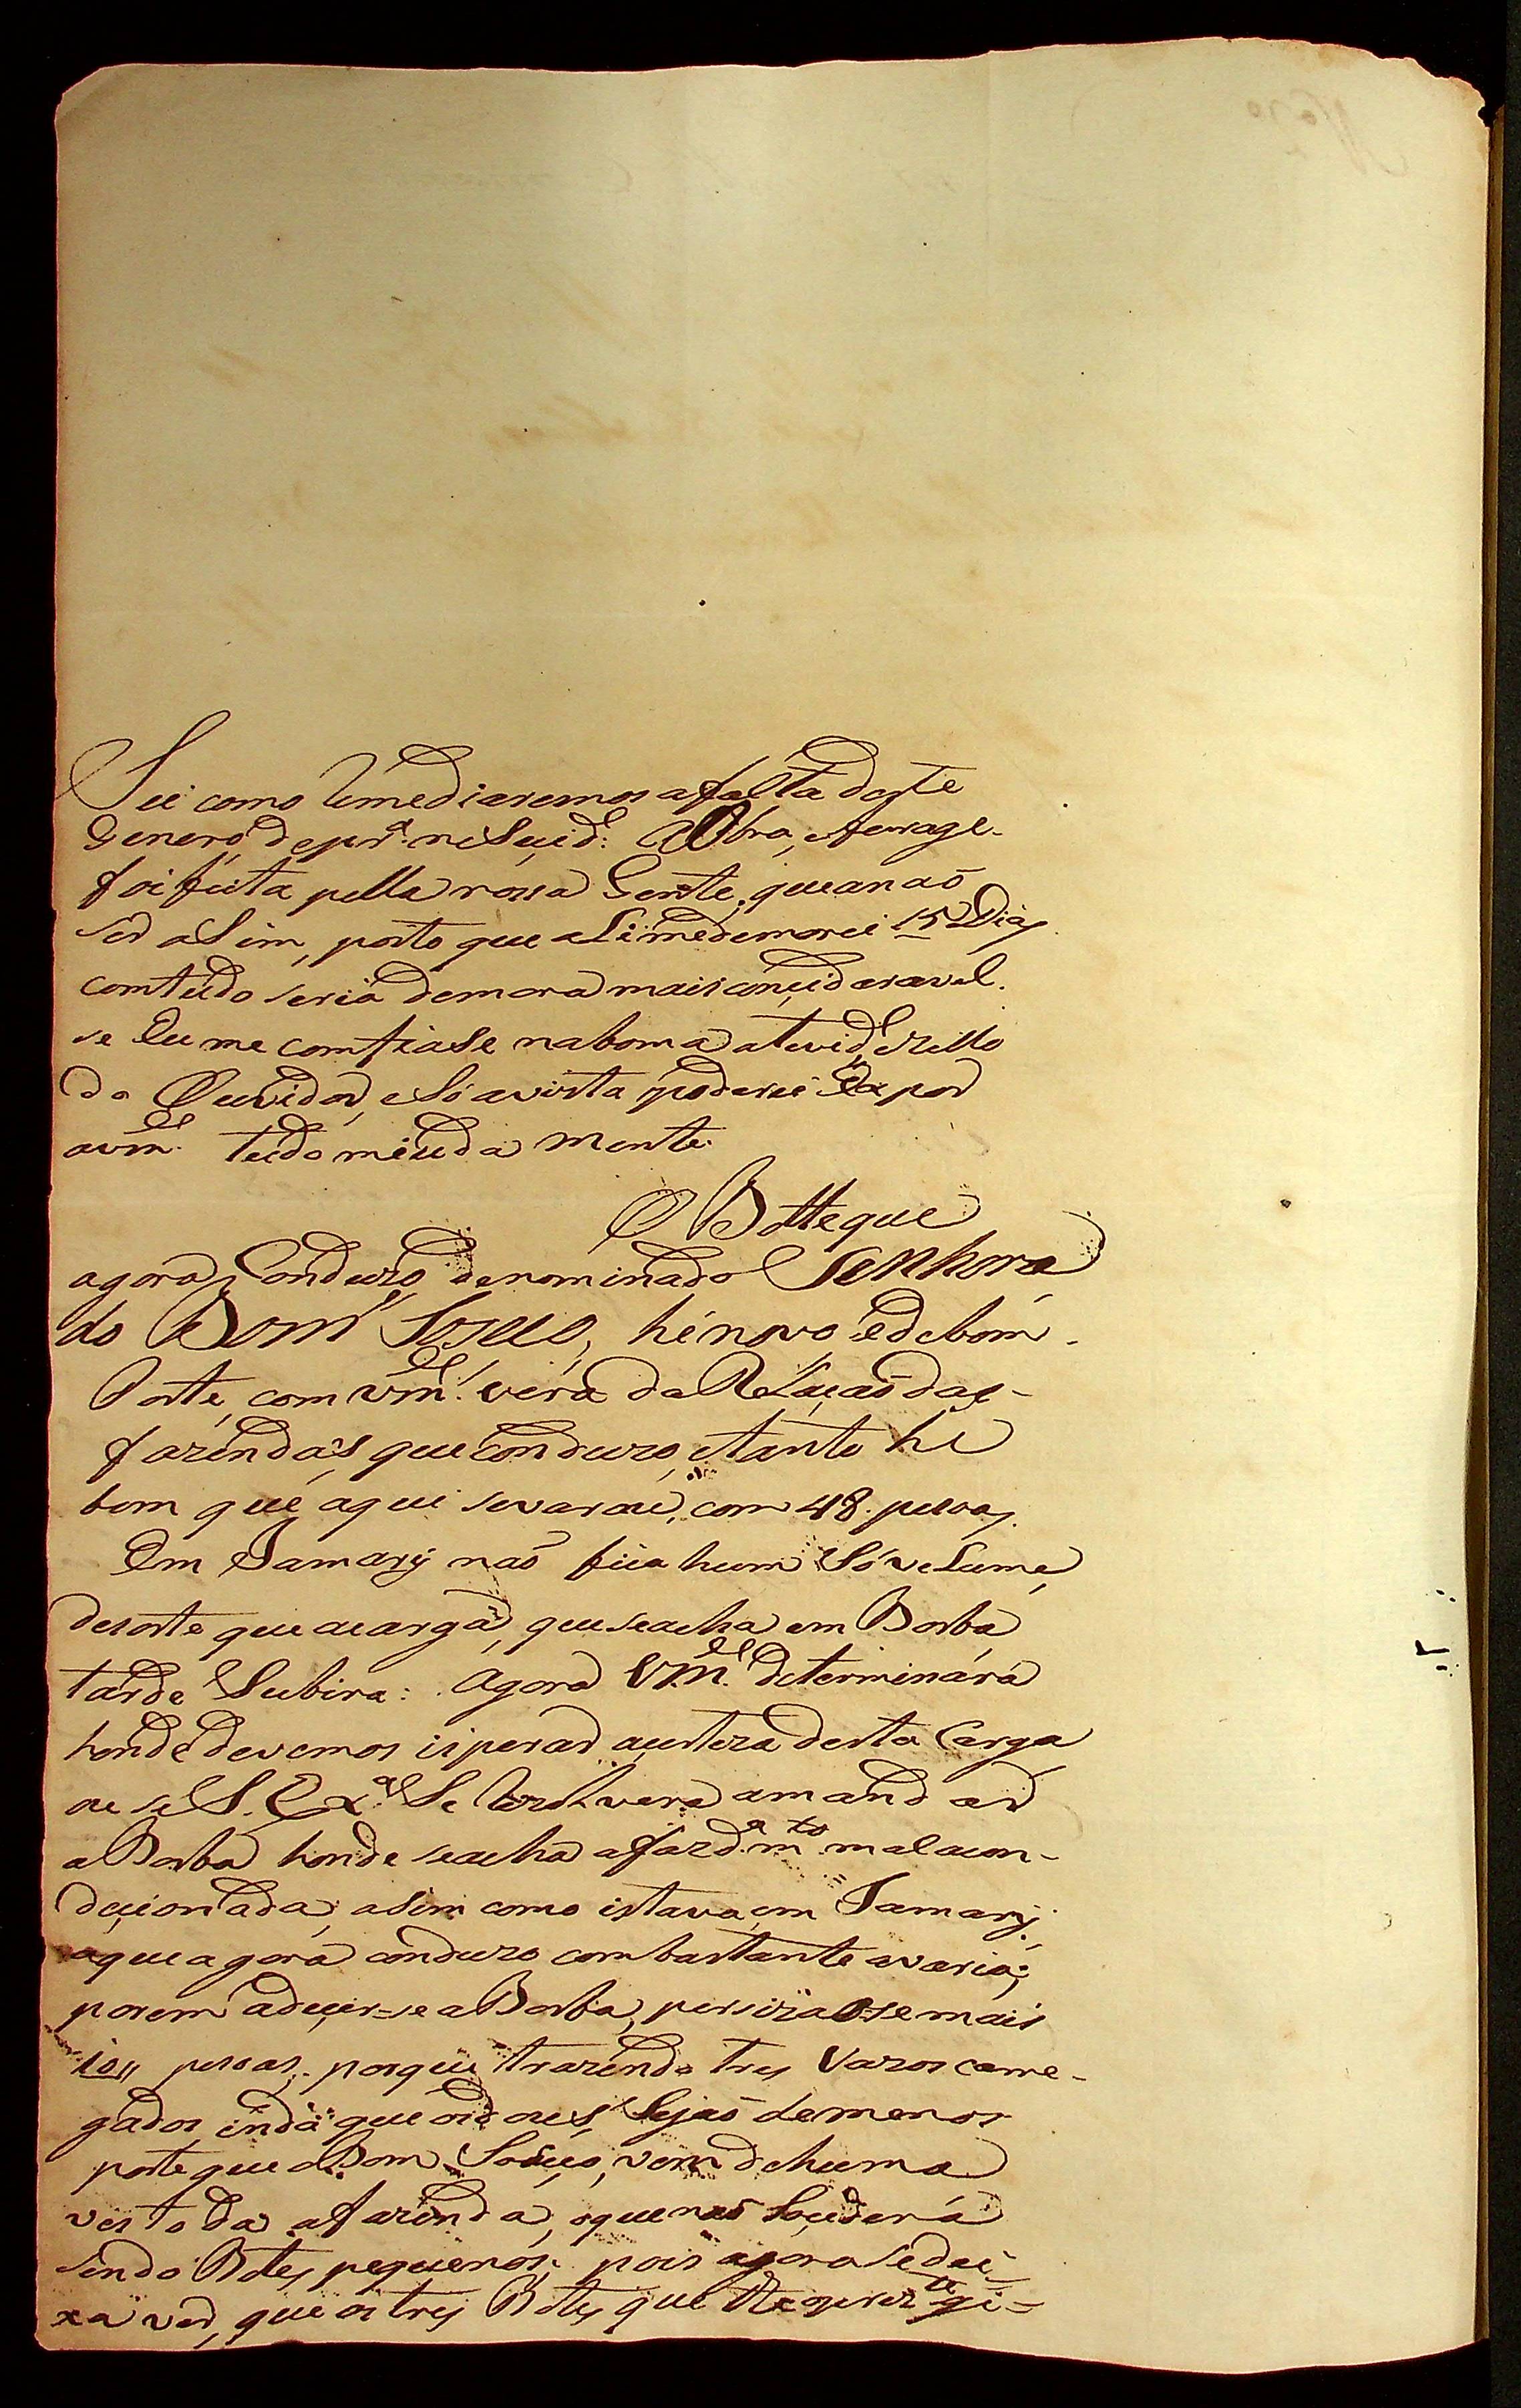 Sei como Remediaremos afalta deste
Genero de pr.ª neSsecid.e: A Obra, eferrage-
foi feita pella nossa Gente, que anaõ
ser aSsim, posto que aSsim medemorei 15 Dias
comtudo seria demora mais concideravel.
se Eu me comfiaSse naboma atevid.e e Zello
do Ouvidor, eSó avista poderei Expor
avm.ce tudo miuda mente.
O Botte que
agora Conduzo denominado Senhora
do Bom Soseso, hé novo, e de bom
Porte, com vm.ce verá da Relaçaõ das-
fazendas que conduzo, etanto he
bom que aqui sevarou, com 48. pessoas.
Em Tamary naõ fica hum Só volume,
desorte que acarga, que seacha em Borba
tarde Subira: Agora Vm.ce determinará
honde devemos isperar aresteza desta Carga
ou se S. Ex.ª Se Rezolvera amandar
aBorba honde seacha afazd.ª m.to malacon-
decionada, asim como istava em Tamary;
aqueagora conduzo combastante avaria;
porem adecer-se aBorba, percizaõ-se mais
10 pessoas; porque trazendo tres Vazos carre-
gados, inda que os dous Sejaõ demenos
porte que oBom Soseso, vem dehuma
ves toda afazenda, oque naõ Soucederá
sendo Botes pequenos; pois agora sedei-
xa ver, que os tres Botes que